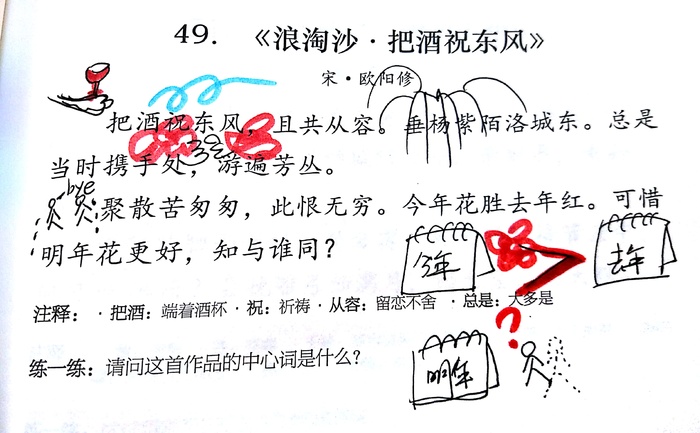 49. 《浪淘沙·把酒祝东风》
宋·欧阳修
把酒祝东风，且共从容。垂杨紫陌洛城东。总是
当时携手处，游遍芳丛。
bye
聚散苦匆匆，此恨无穷。今年花胜去年红。可惜
明年花更好，知与谁同？
今年
去年
注释：·把酒：端着酒杯·祝：祈祷·从容：留恋不舍 ·总是：大多是
?
练一练：请问这首作品的中心词是什么？
明年